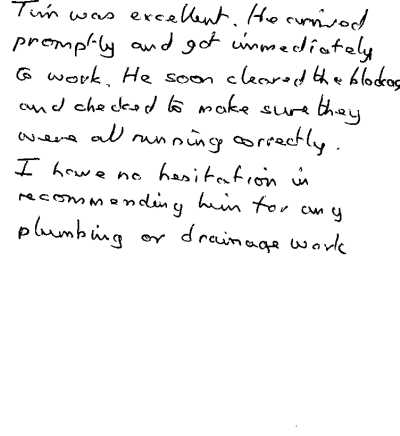 Tim was excellent. He arrived
promptly and got immediately
to work. He soon cleared the
and checked to make sure they
were all running correctly.
I have no hesitation in
recommending him for any
plumbing or drainage work